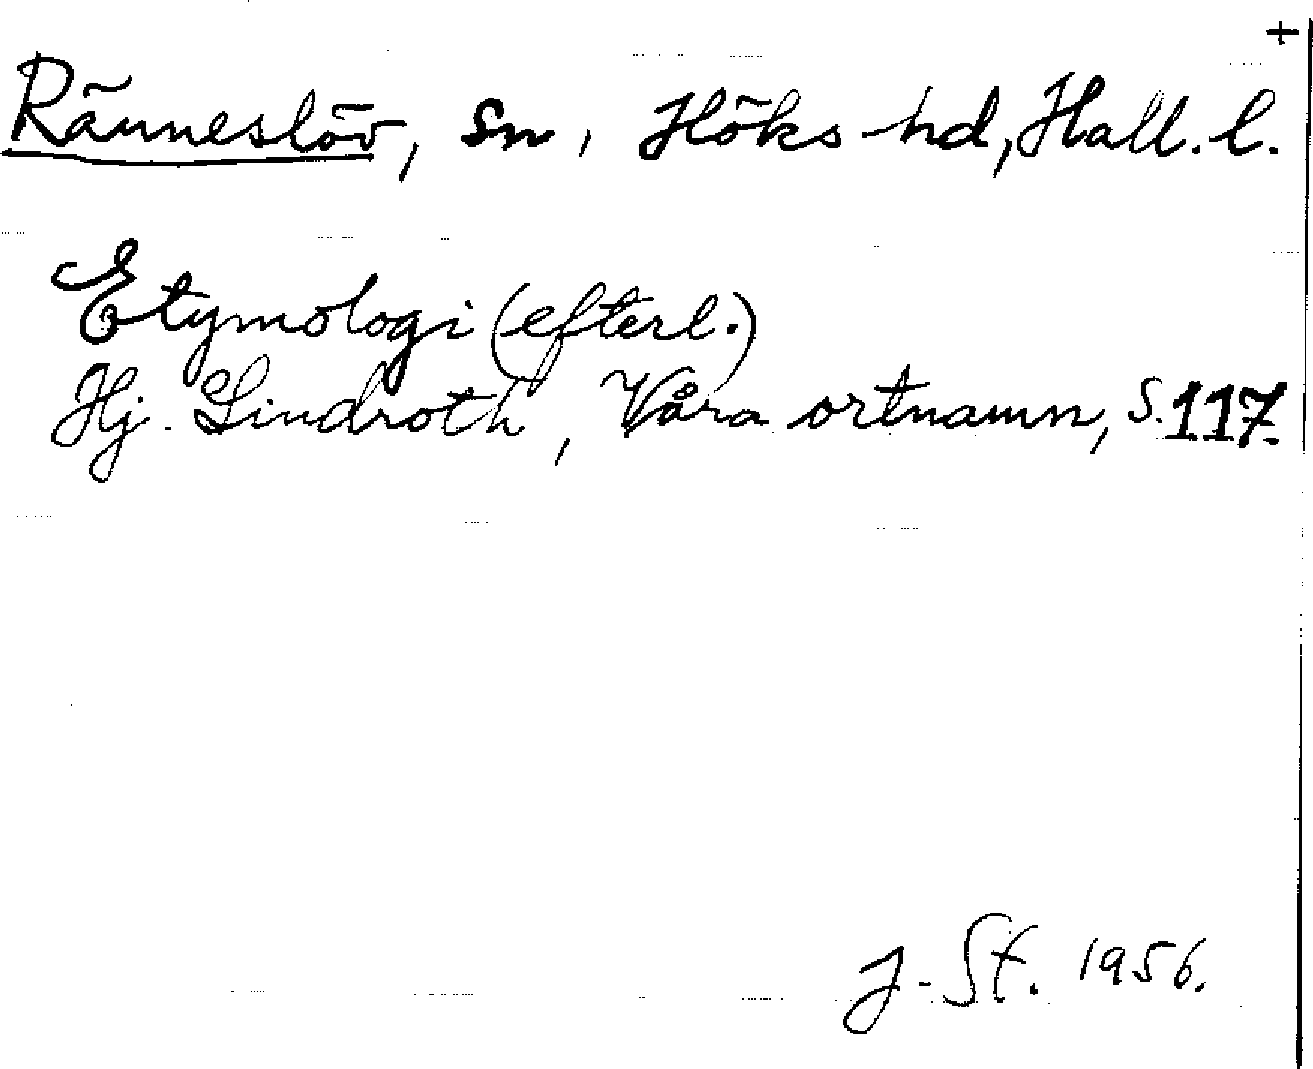 +
Ränneslöv, sn, Höks hd, Hall. l.
Etymologi (efterl.)
Hj. Lindroth, Våra ortnamn, s. 117.
J. St. 1956.